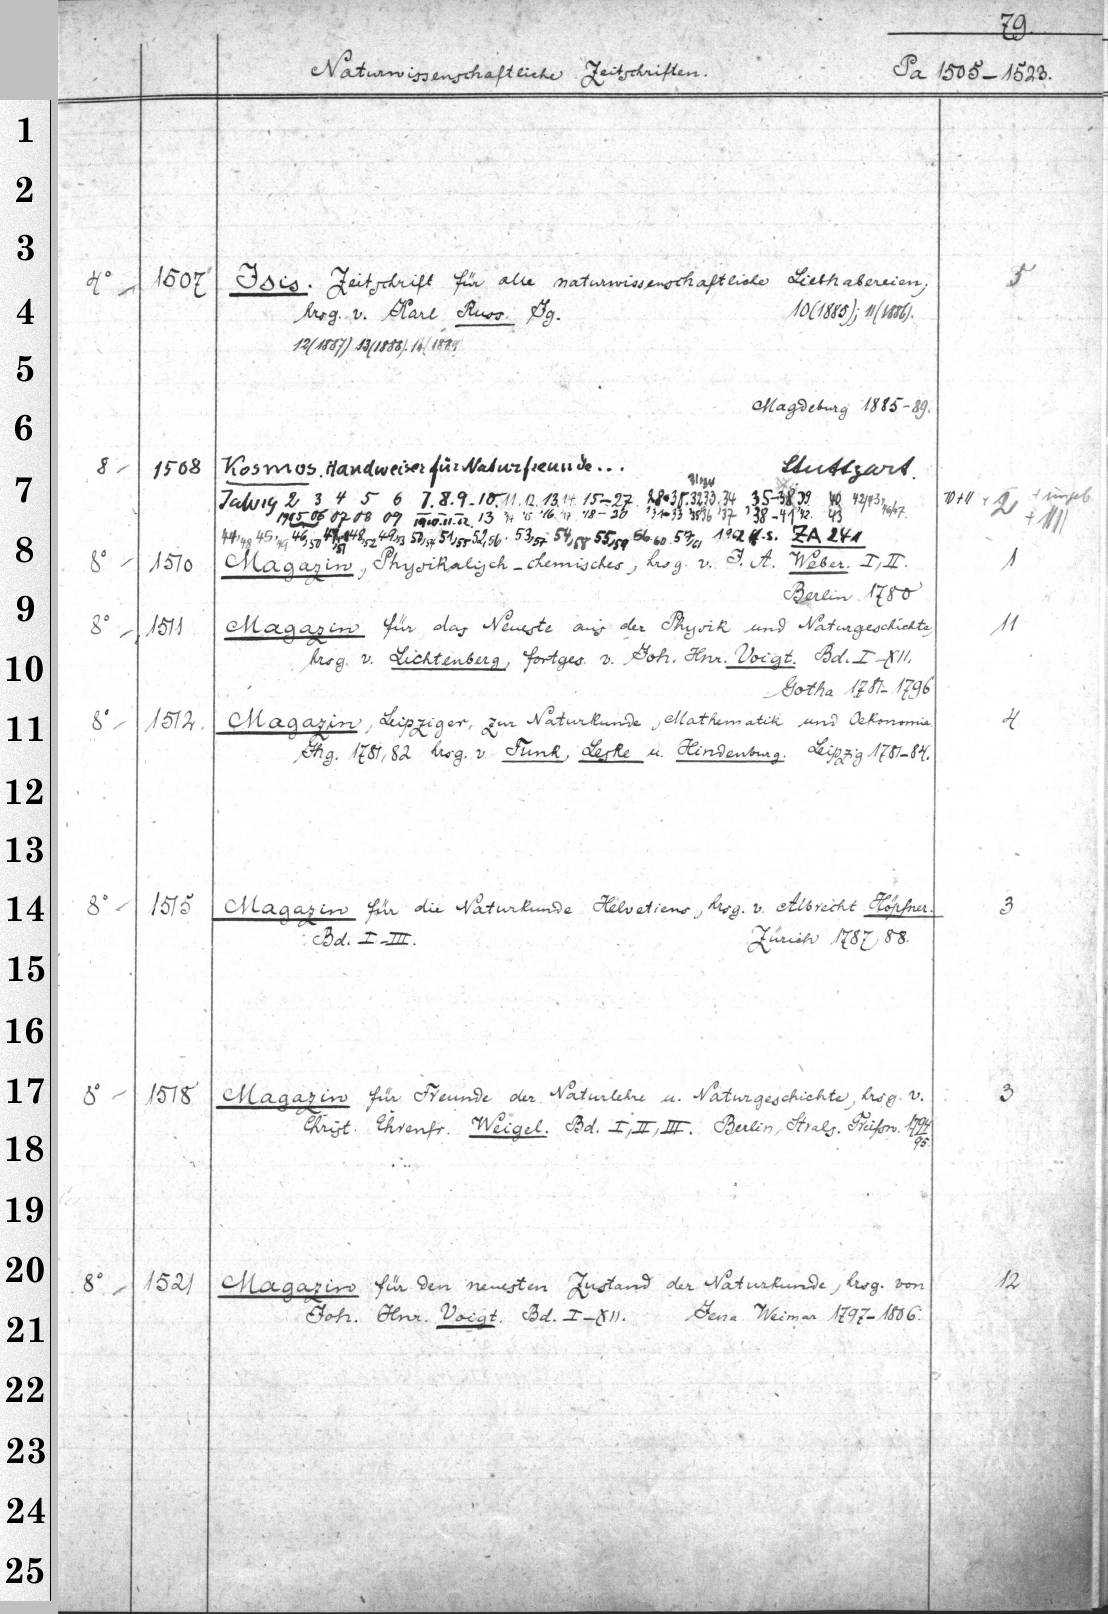 79.
Naturwissenschaftliche Zeitschriften. Pa 1505–1523.
1
2
3
4° 1507 Isis. Zeitschrift für alle naturwissenschaftliche Liebhabereien, 5
4 hrsg. v. Karl Russ. Jg. 10(1885); 11(1886).
12(1887) 13(1888). 14(1889)
5
6 Magdeburg 1885–89.
8 1508 Kosmos. Handweiser für Naturfreunde... Stuttgart.
7 2 3 4 5 6 7. 8. 9. 10. 11. 12. 13. 14 15–27 34 35–38 39 10+11 + 2 + ungeb
1905 06 07 08 09 1910. 11. 12. 13 38–41 42. 43
8 1962 ff. s. ZA 241
8° 1510 Magazin, Physikalisch-chemisches, hrsg. v. J. A. Weber. I, II. 1
9 Berlin 1780
8° 1511 Magazin für das Neueste aus der Physik und Naturgeschichte, 11
10 hrsg. v. Lichtenberg, fortges. v. Joh. Hnr. Voigt. Bd. I–XII.
Gotha 1781–1796
11 8° 1512. Magazin, Leipziger, zur Naturkunde, Mathematik und Oekonomie 4
Jhg. 1781, 82 hrsg. v. Funk, Leske u. Hindenburg. Leipzig 1781–84.
12
13
14 8° 1515 Magazin für die Naturkunde Helvetiens, hrsg. v. Albrecht Höpfner. 3
Bd. I–III. Zürich 1787, 88.
15
16
17 8° 1518 Magazin für Freunde der Naturlehre u. Naturgeschichte, hrsg. v. 3
Christ. Ehrenfr. Weigel. Bd. I, II, III. Berlin, Strals. 1794
95.
18
19
20 8° 1521 Magazin für den neuesten Zustand der Naturkunde, hrsg. von 12
21 Joh. Hnr. Voigt. Bd. I–XII. Jena Weimar 1797–1806.
22
23
24
25